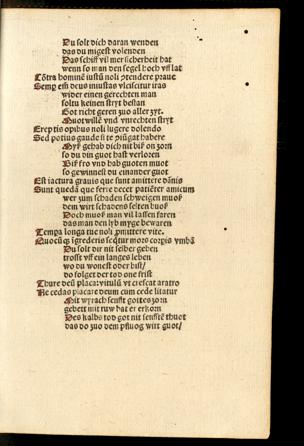 Du solt dich daran wenden
das du migest volenden
Das schiff vil mer sicherheit hat
wenn so man den segel hoch vff lat
Cōtra hominē iustū noli p̄tendere praue
Semp em̄ deus iniustas vlciscitur iras
wider einen gerechten man
soltu keinen stryt bestan
Got richt geren zuo aller zyt
Muotwille vnd vnrechten stryt
Ereptis opibus noli lugere dolendo
Sed potius gaude si te ꝯtingat habere
Myſ gehab dich nit bisz on zorn
so du din guot hast verloren
Bisz fro vnd hab guoten muot
so gewinnest du einander guot
Est iactura grauis que sunt amittere dānis
Sunt quedā que ferre decet patiēter amicum
wer zum schaden schweigen muosz
dem wirt schadens selten buosz
Doch muosz man vil lassen faren
das man den lyb mvge bewaren
Tempa longa tue noli ꝓmittere vite.
Quocūqꝫ igrederis seqtur mors corpis vmbā
Du solt dir nit selber geben
trosst vff ein langes leben
wo du wonest oder bist/
do folget der tod one frist
Thure deū placa vitulū vt crescat aratro
Ne credas placare deum cum cede litatur
Mit wyrach senfft gottes zorn
gebett mit ruw hat er erkorn
Des kalbs tod got nit senffte thuot
das do zuo dem pfluog wirt guot/